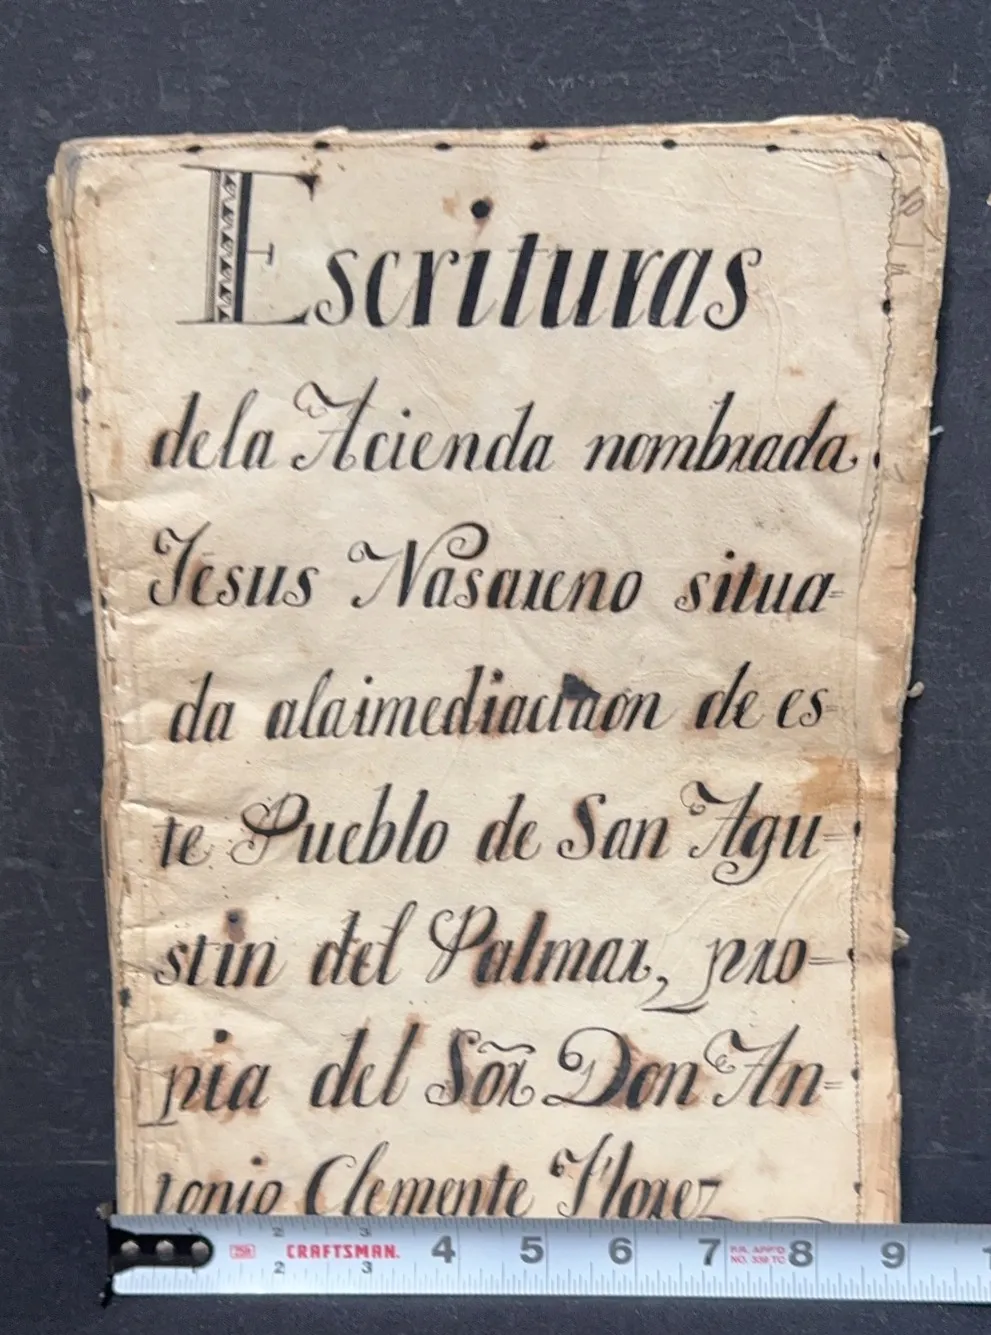 Escrituras
dela Acienda nombrada
Jesus Nasareno situa=
da alaimediacion de es=
te Pueblo de San Agu=
stin del Palmar, pro=
pia del Sõr Don An=
tonio Clemente Florez
CRAFTSMAN. 2 3 4 5 6 7 8 9
2 3